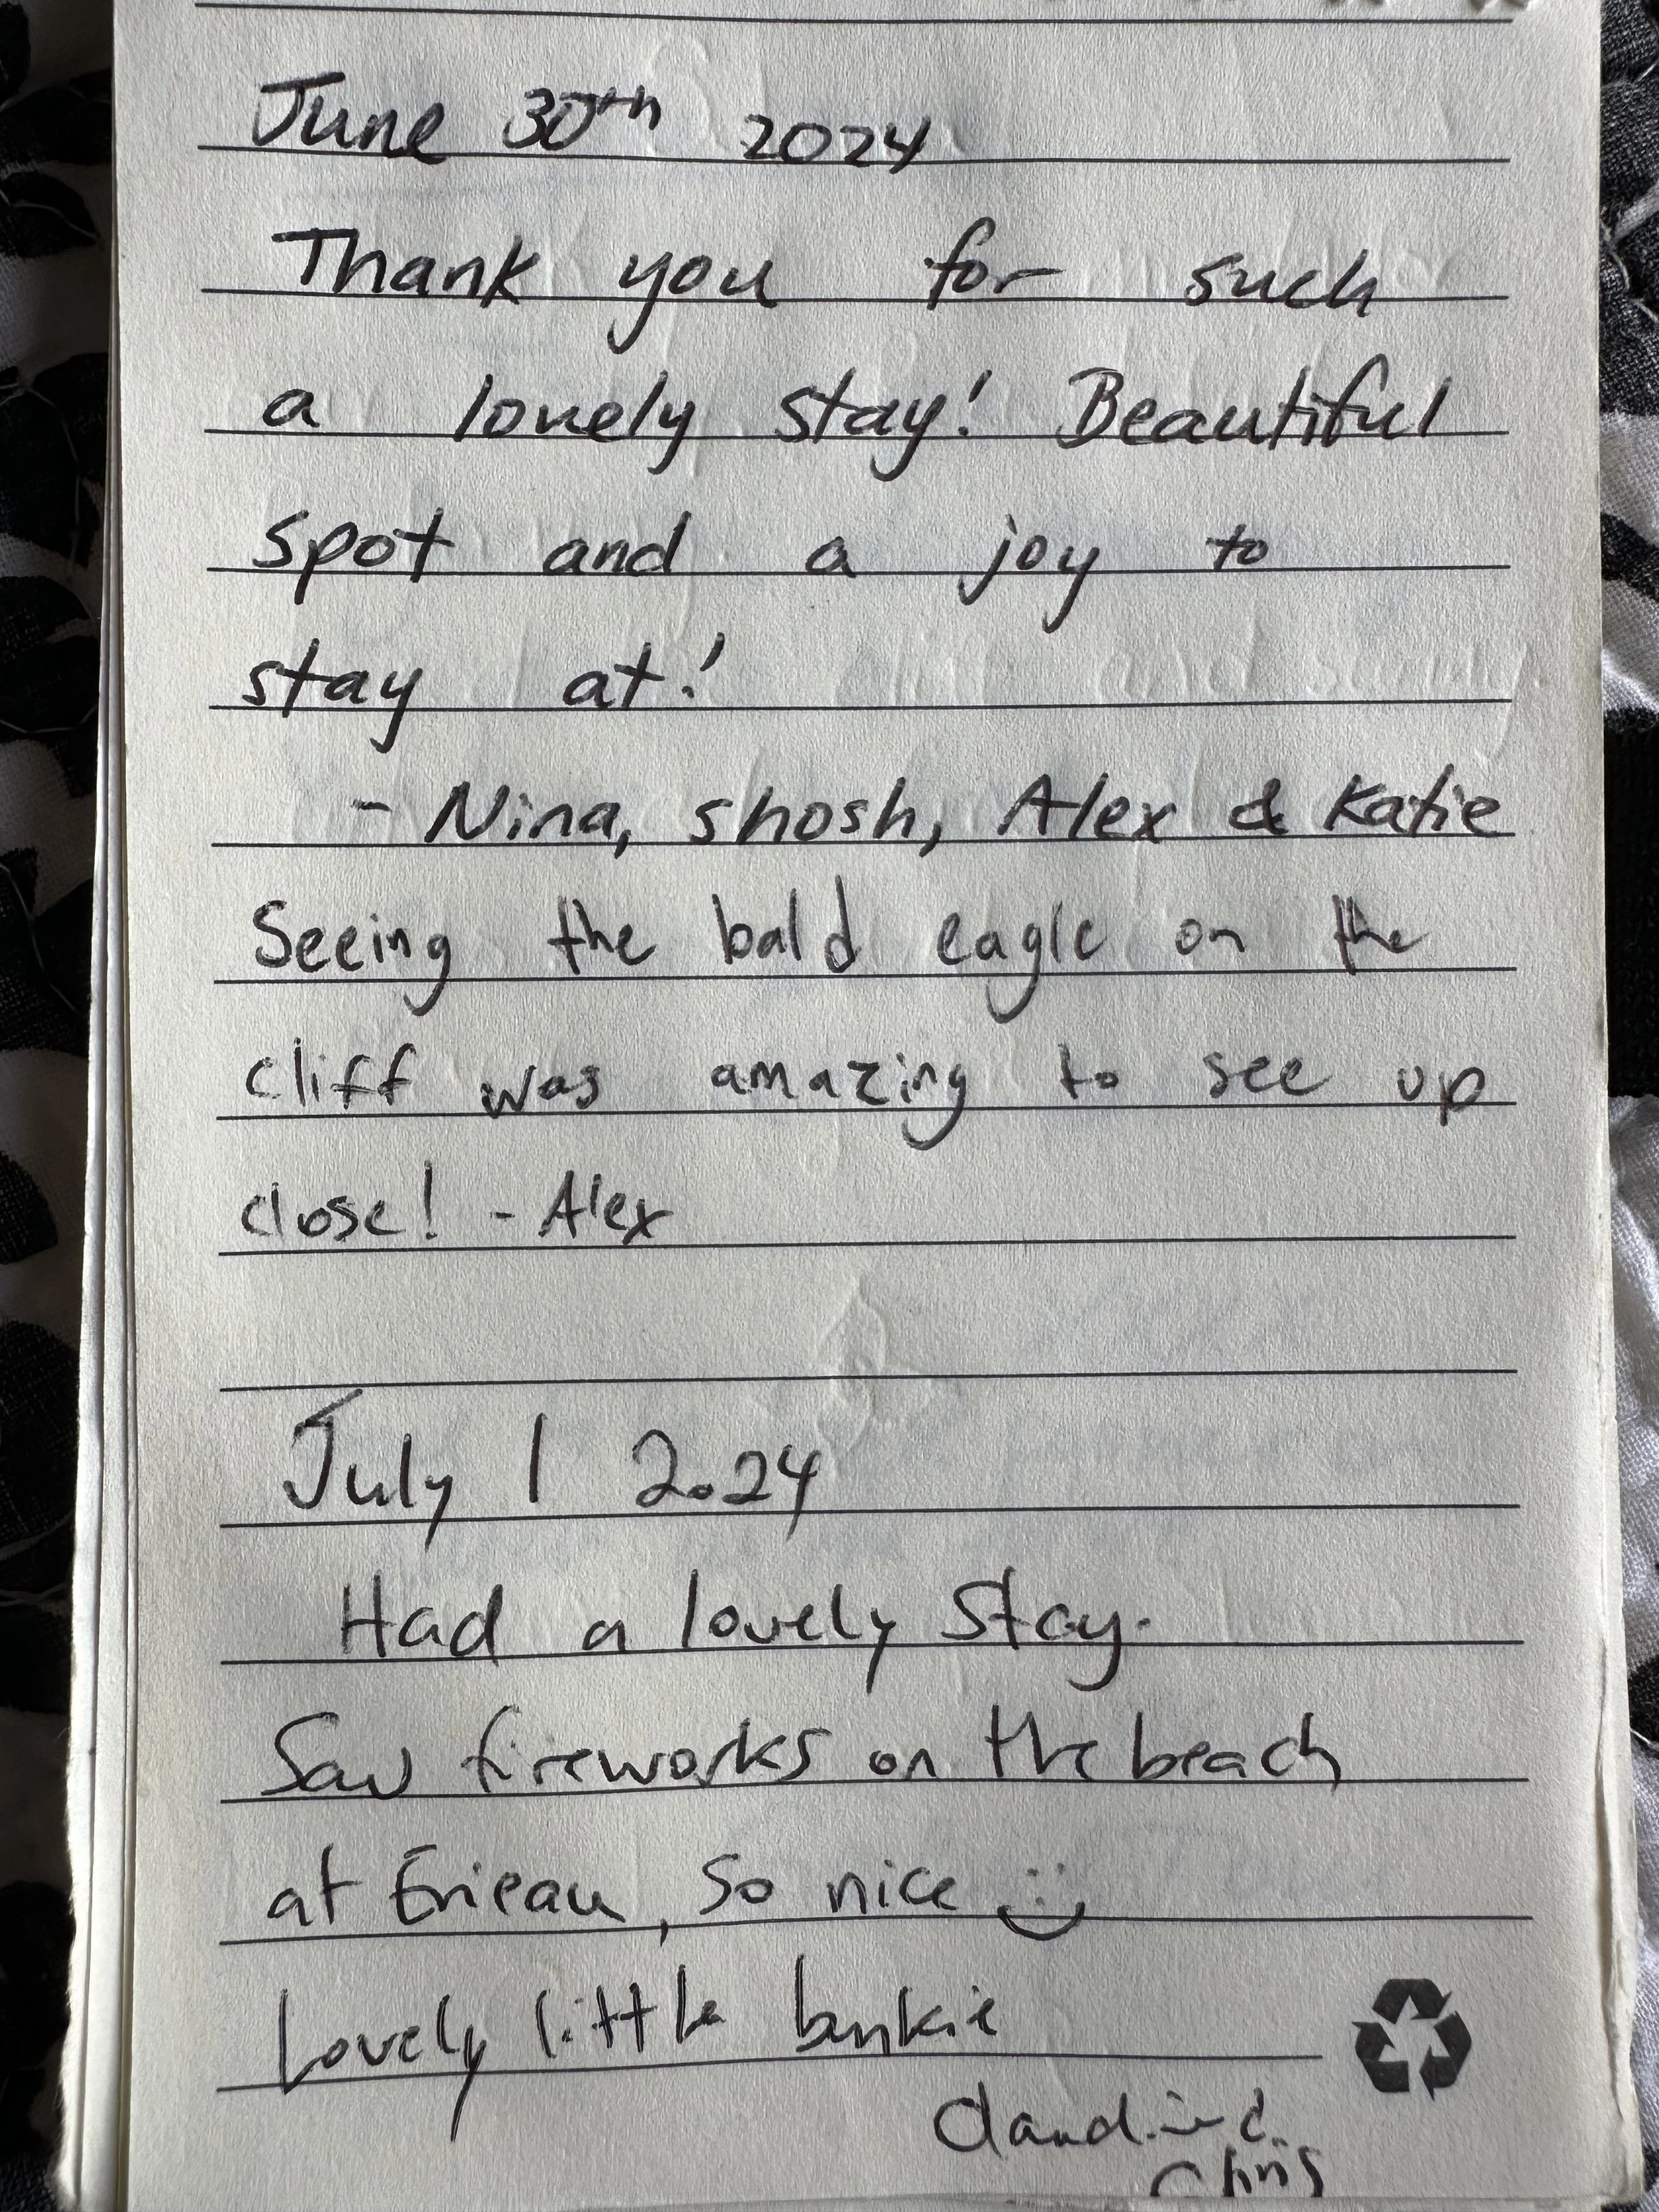 June 30th 2024
Thank you for such
a lovely stay! Beautiful
spot and a joy to
stay at!
- Nina, Shosh, Alex & Katie
Seeing the bald eagle on the
cliff was amazing to see up
close! - Alex
July 1 2024
Had a lovely Stay.
Saw fireworks on the beach
at Erieau, So nice :)
Lovely little bunkie
Chris